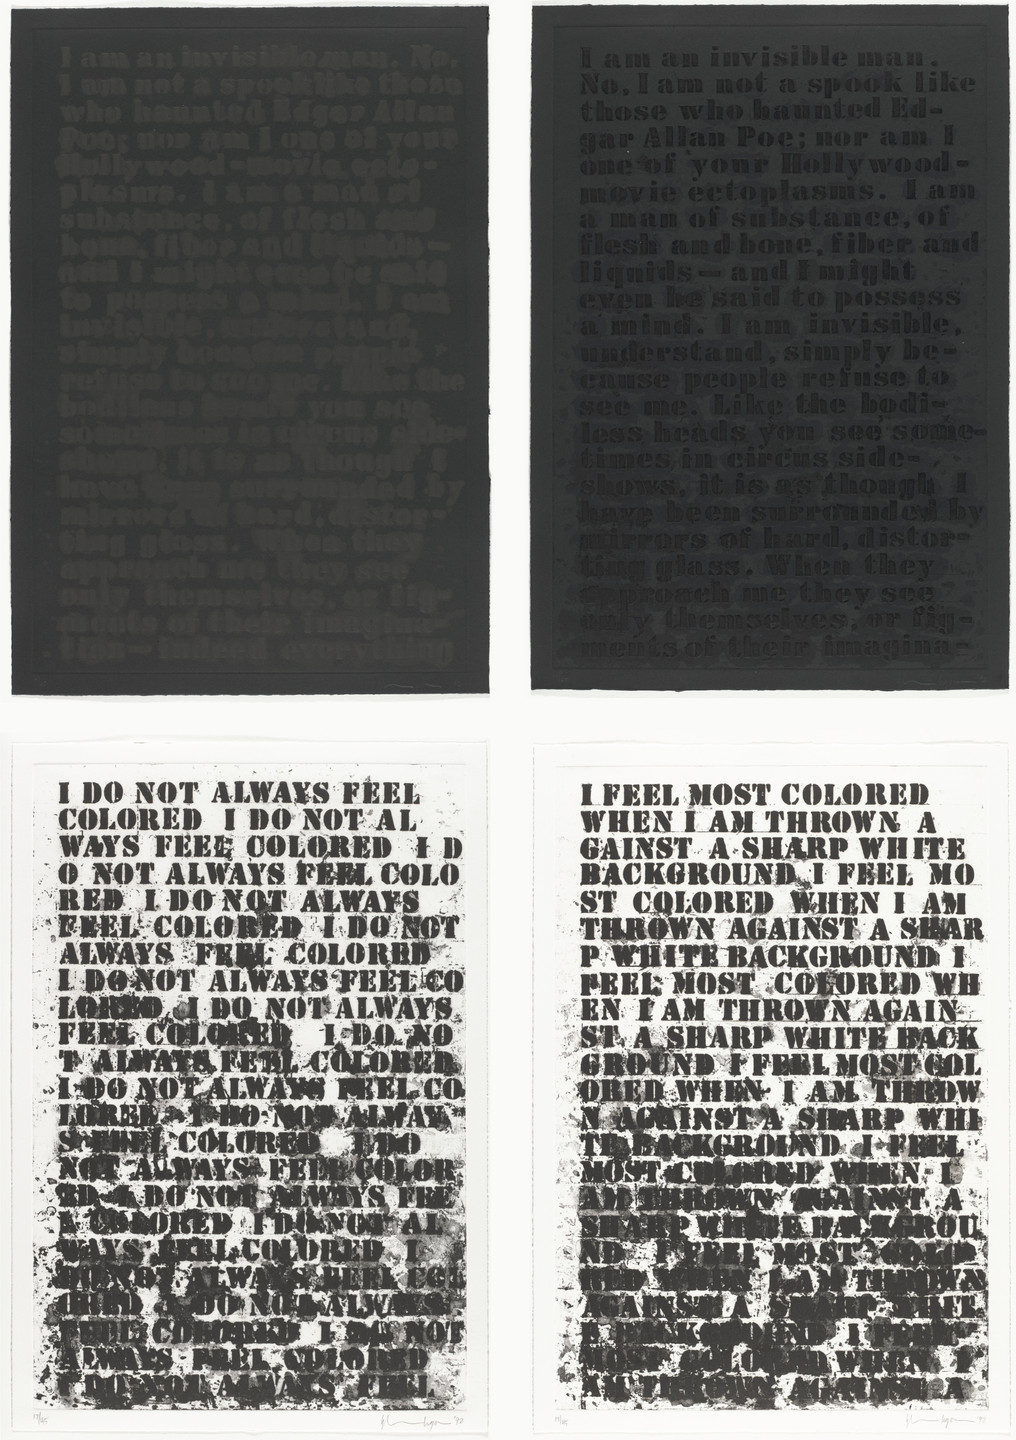 I am an invisible man. No,
I am not a spook like those
who haunted Edgar Allan
Poe; nor am I one of your
Hollywood-movie ecto-
plasms. I am a man of
substance, of flesh and
bone, fiber and liquids-
and I might even be said
to possess a mind. I am
invisible, understand,
simply because people
refuse to see me. Like the
bodiless heads you see
sometimes in circus side-
shows, it is as though I
have been surrounded by
mirrors of hard, distor-
ting glass. When they
approach me they see
only themselves, or fig-
ments of their imagina-
tion— indeed everything
I am an invisible man.
No, I am not a spook like
those who haunted Ed-
gar Allan Poe; nor am I
one of your Hollywood-
movie ectoplasms. I am
a man of substance, of
flesh and bone, fiber and
liquids— and I might
even be said to possess
a mind. I am invisible,
understand, simply be-
cause people refuse to
see me. Like the bodi-
less heads you see some-
times in circus side-
shows, it is as though I
have been surrounded by
mirrors of hard, distor-
ting glass. When they
approach me they see
only themselves, or fig-
ments of their imagina-
I DO NOT ALWAYS FEEL
COLORED I DO NOT AL
WAYS FEEL COLORED I D
O NOT ALWAYS FEEL COLO
RED I DO NOT ALWAYS
FEEL COLORED I DO NOT
ALWAYS FEEL COLORED
I DO NOT ALWAYS FEEL CO
LORED I DO NOT ALWAYS
FEEL COLORED I DO NO
T ALWAYS FEEL COLORED
I DO NOT ALWAYS FEEL CO
LORED I DO NOT ALWAY
S FEEL COLORED I DO
NOT ALWAYS FEEL COLOR
ED I DO NOT ALWAYS FEE
L COLORED I DO NOT AL
WAYS FEEL COLORED I
DO NOT ALWAYS FEEL COL
ORED I DO NOT ALWAYS
FEEL COLORED I DO NOT
ALWAYS FEEL COLORED
I DO NOT ALWAYS FEEL
I FEEL MOST COLORED
WHEN I AM THROWN A
GAINST A SHARP WHITE
BACKGROUND I FEEL MO
ST COLORED WHEN I AM
THROWN AGAINST A SHAR
P WHITE BACKGROUND I
FEEL MOST COLORED WH
EN I AM THROWN AGAIN
ST A SHARP WHITE BACK
GROUND I FEEL MOST COL
ORED WHEN I AM THROW
N AGAINST A SHARP WHI
TE BACKGROUND I FEEL
MOST COLORED WHEN I
AM THROWN AGAINST A
SHARP WHITE BACKGROU
ND I FEEL MOST COLO
RED WHEN I AM THROWN
AGAINST A SHARP WHIT
E BACKGROUND I FEEL
MOST COLORED WHEN I
AM THROWN AGAINST A